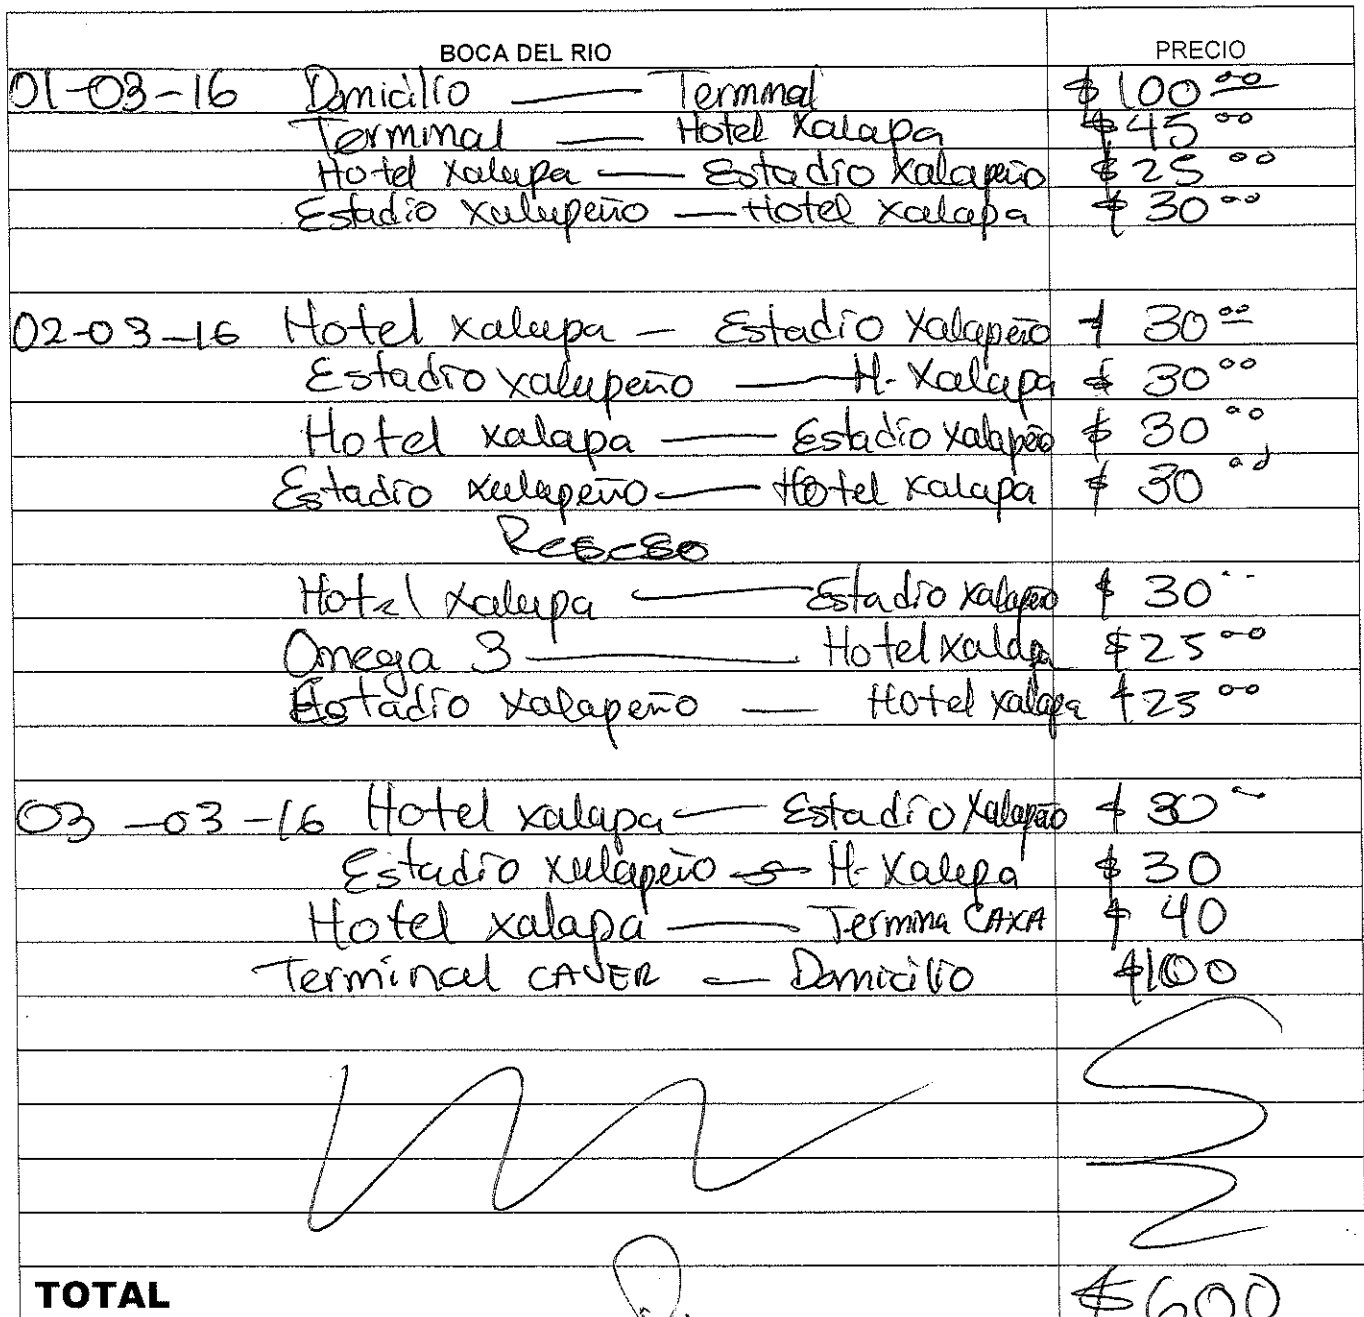 BOCA DEL RIO PRECIO
01-03-16 Domicilio — Terminal $100.00
Terminal — Hotel Xalapa $45.00
Hotel Xalapa — Estadio Xalapeño $25.00
Estadio Xalapeño — Hotel Xalapa $30.00
02-03-16 Hotel Xalapa — Estadio Xalapeño $30.00
Estadio Xalapeño — H. Xalapa $30.00
Hotel Xalapa — Estadio Xalapeño $30.00
Estadio Xalapeño — Hotel Xalapa $30.00
Reseso
Hotel Xalapa — Estadio Xalapeño $30
Omega 3 — Hotel Xalapa $25.00
Estadio Xalapeño — Hotel Xalapa $25.00
03-03-16 Hotel Xalapa — Estadio Xalapeño $30
Estadio Xalapeño — H. Xalapa $30
Hotel Xalapa — Termina CAXA $40
Terminal CAVER — Domicilio $100
TOTAL $600